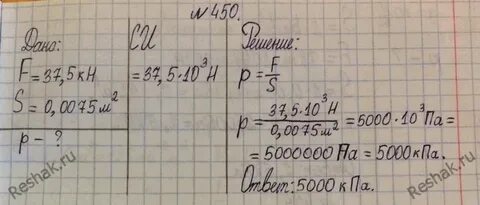 № 450.
Дано:
F = 37,5 кН
S = 0,0075 м²
p - ?
СИ
= 37,5·10³ Н
Решение:
p = F/S
p = 37,5·10³ Н / 0,0075 м² = 5000·10³ Па =
= 5000000 Па = 5000 кПа.
Ответ: 5000 кПа.
Reshak.ru
Reshak.ru